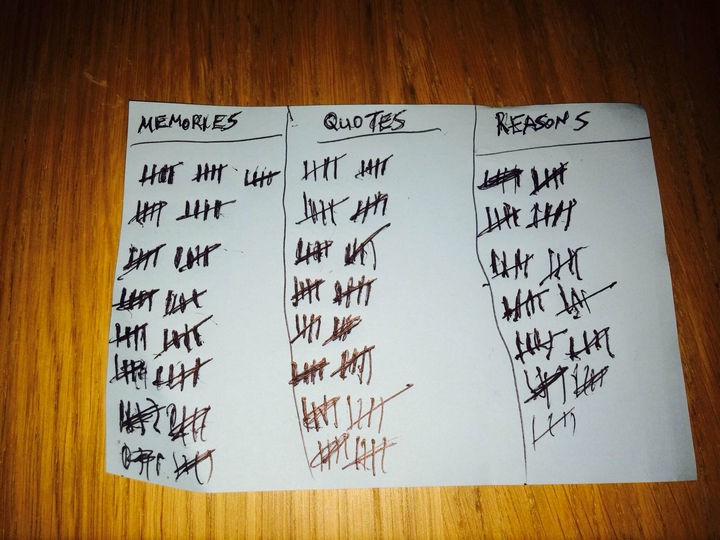 MEMORIES
QUOTES
REASONS